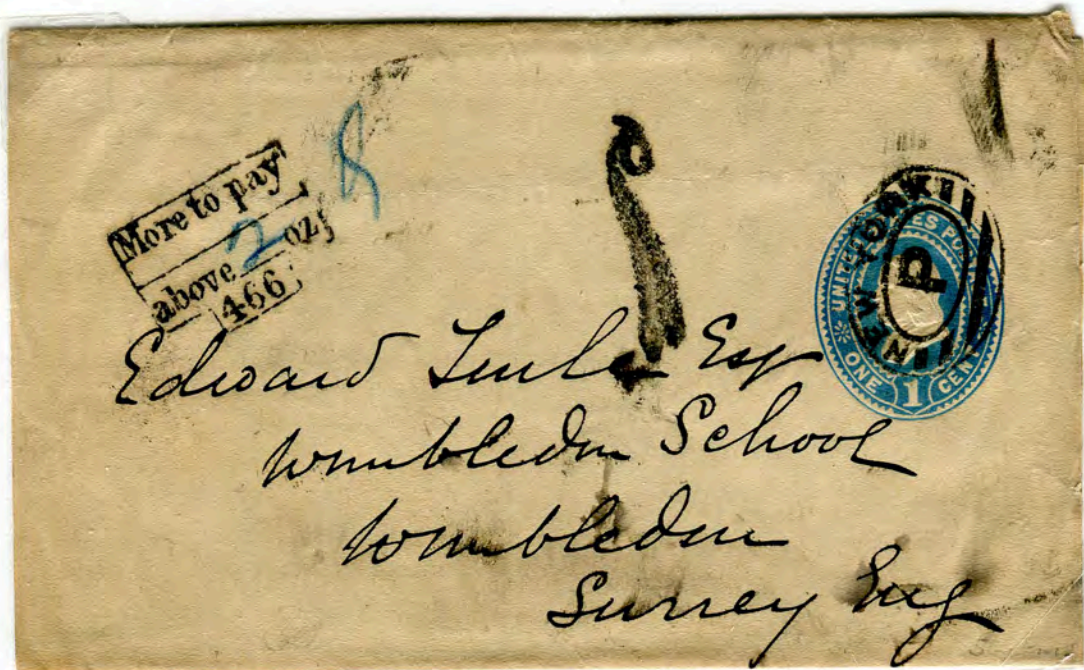 More to pay
above 2 oz
466
NEW YORK
P
UNITED STATES POSTAGE
ONE 1 CENT
Edward Esq
Wimbledon School
Wimbledon
Surrey Eng